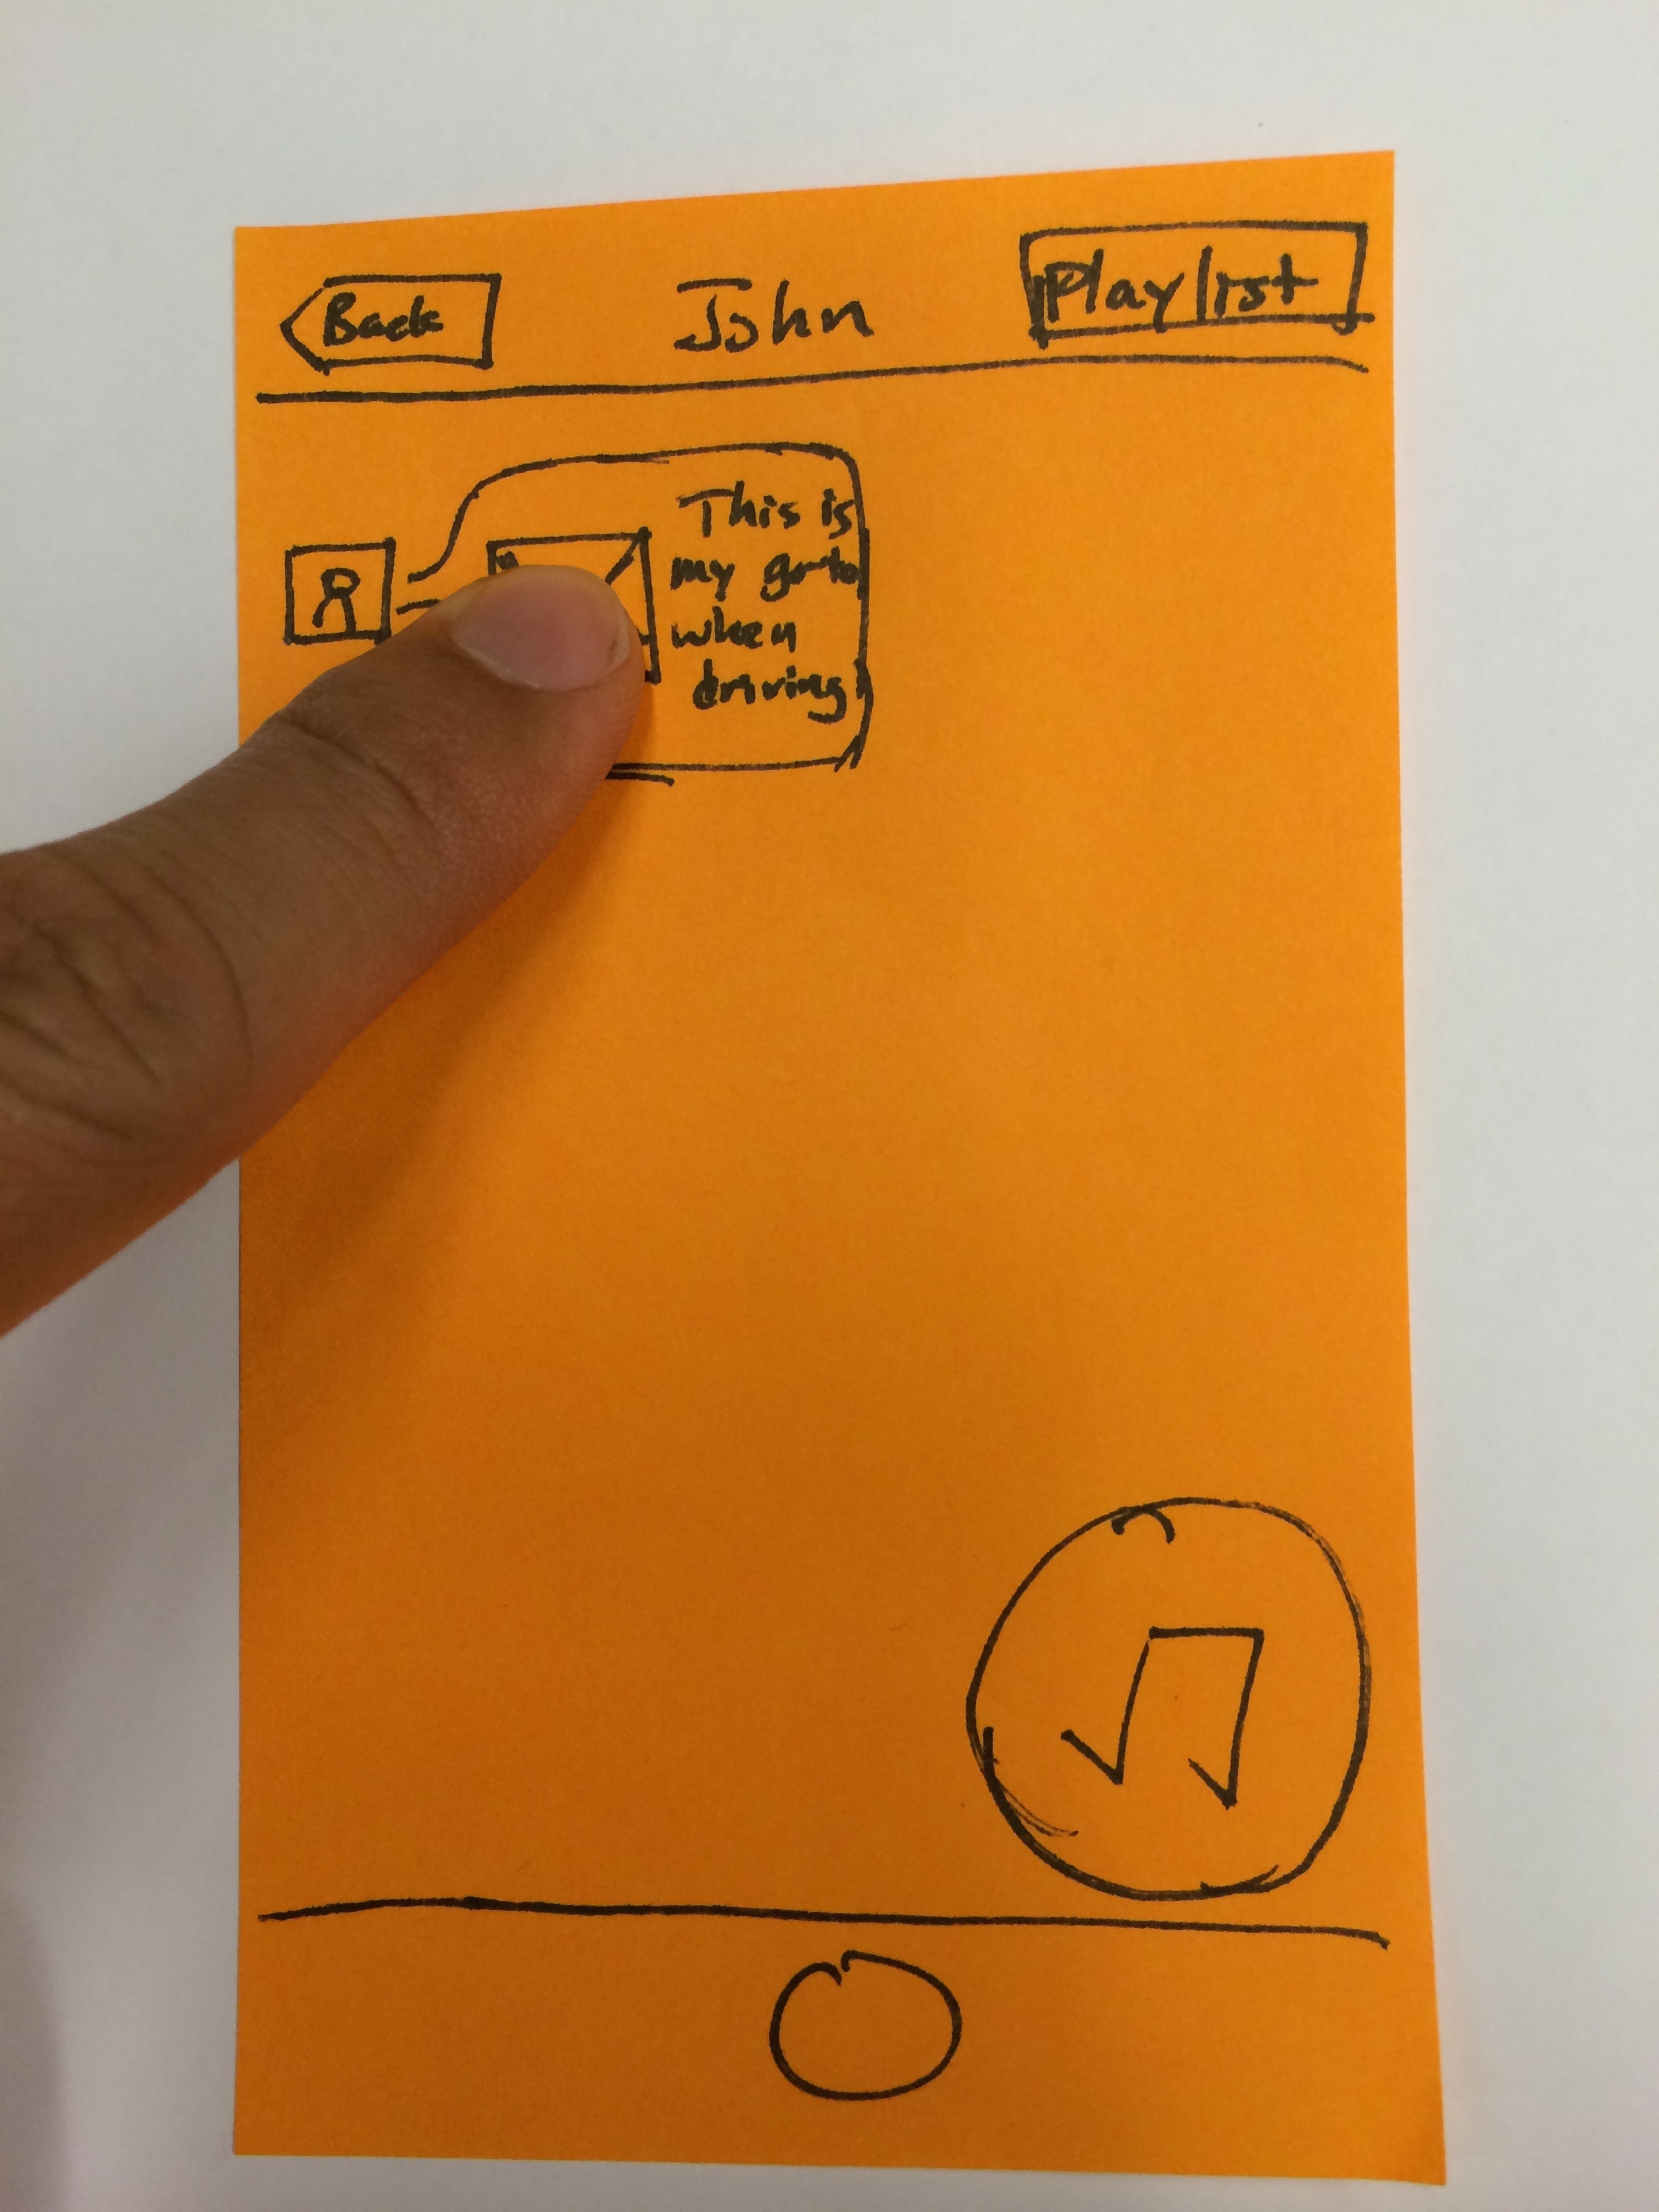 Back
John
Playlist
This is
my go-to
when
driving!